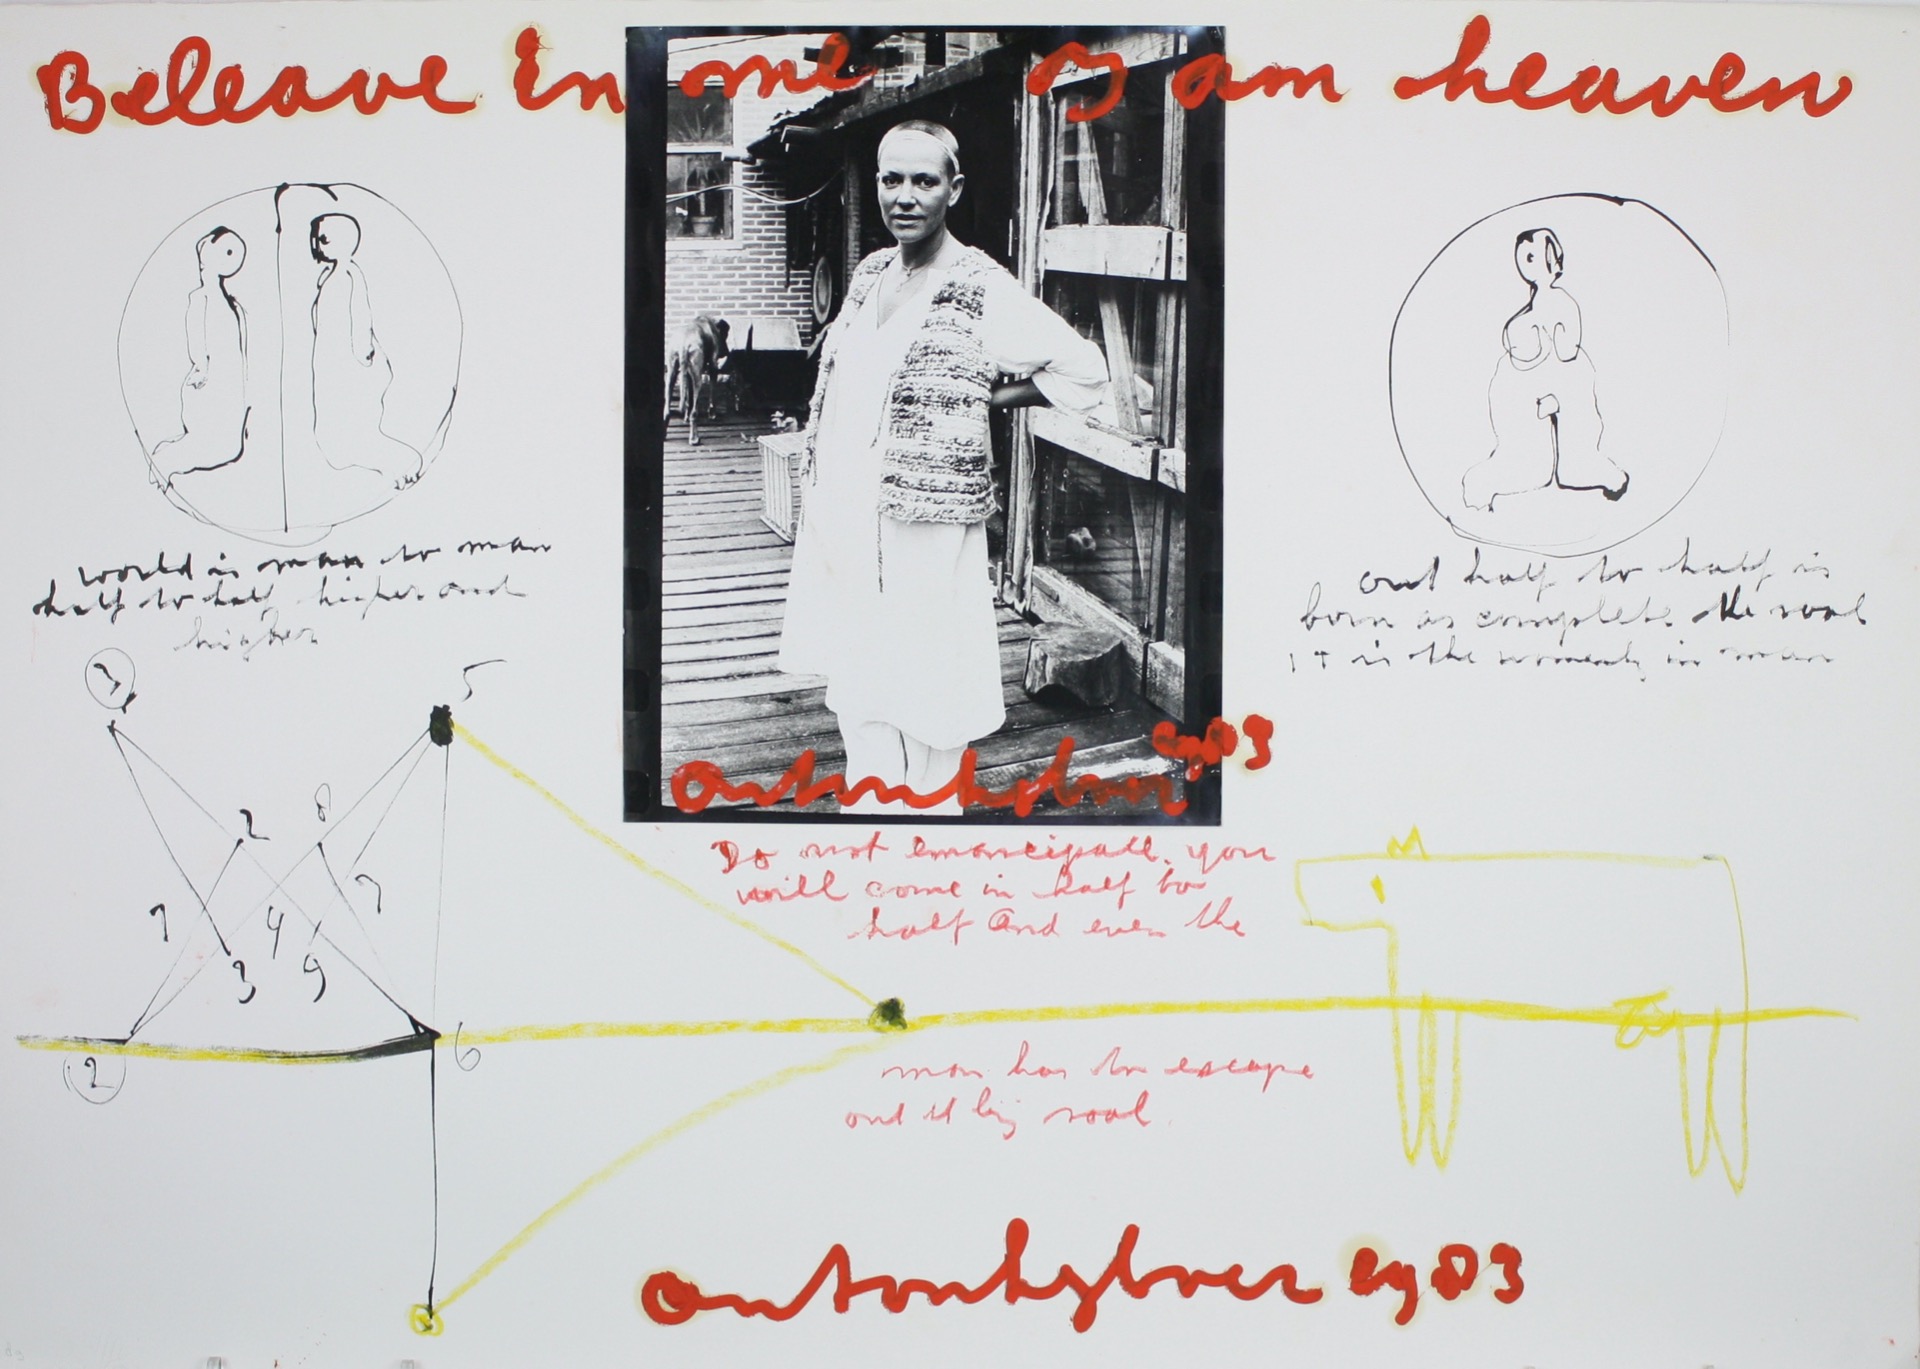 Beleave in me oy am heaven
world is man to man
half to half higher and
higher
out half to half is
born as complete the soal
it is the womenly in man
1
5
2
8
7
4
7
3
9
2
6
antonheyboer 1983
Do not emancipate. you
will come in half to
half and even the
man has to escape
out it by soal.
antonheyboer 1983